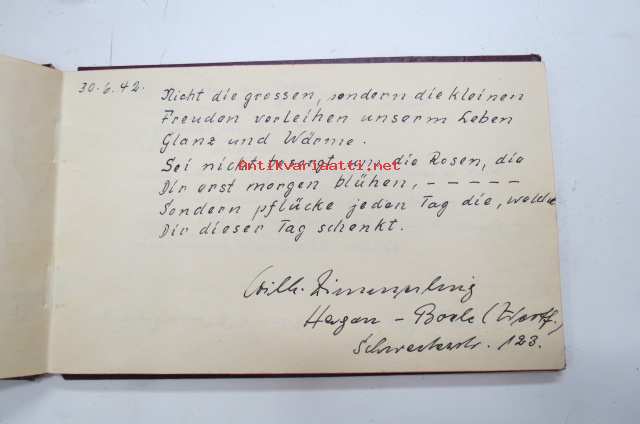 30.6.42.
Nicht die grossen, sondern die kleinen
Freuden verleihen unserm Leben
Glanz und Wärme.
Sei nicht besorgt um die Rosen, die
antikvariaatti.net
Dir erst morgen blühen, – – – – –
Sondern pflücke jeden Tag die, welche
Dir dieser Tag schenkt.
Wilh. Zimmerling
Hagen – Boele (Westf.)
123.